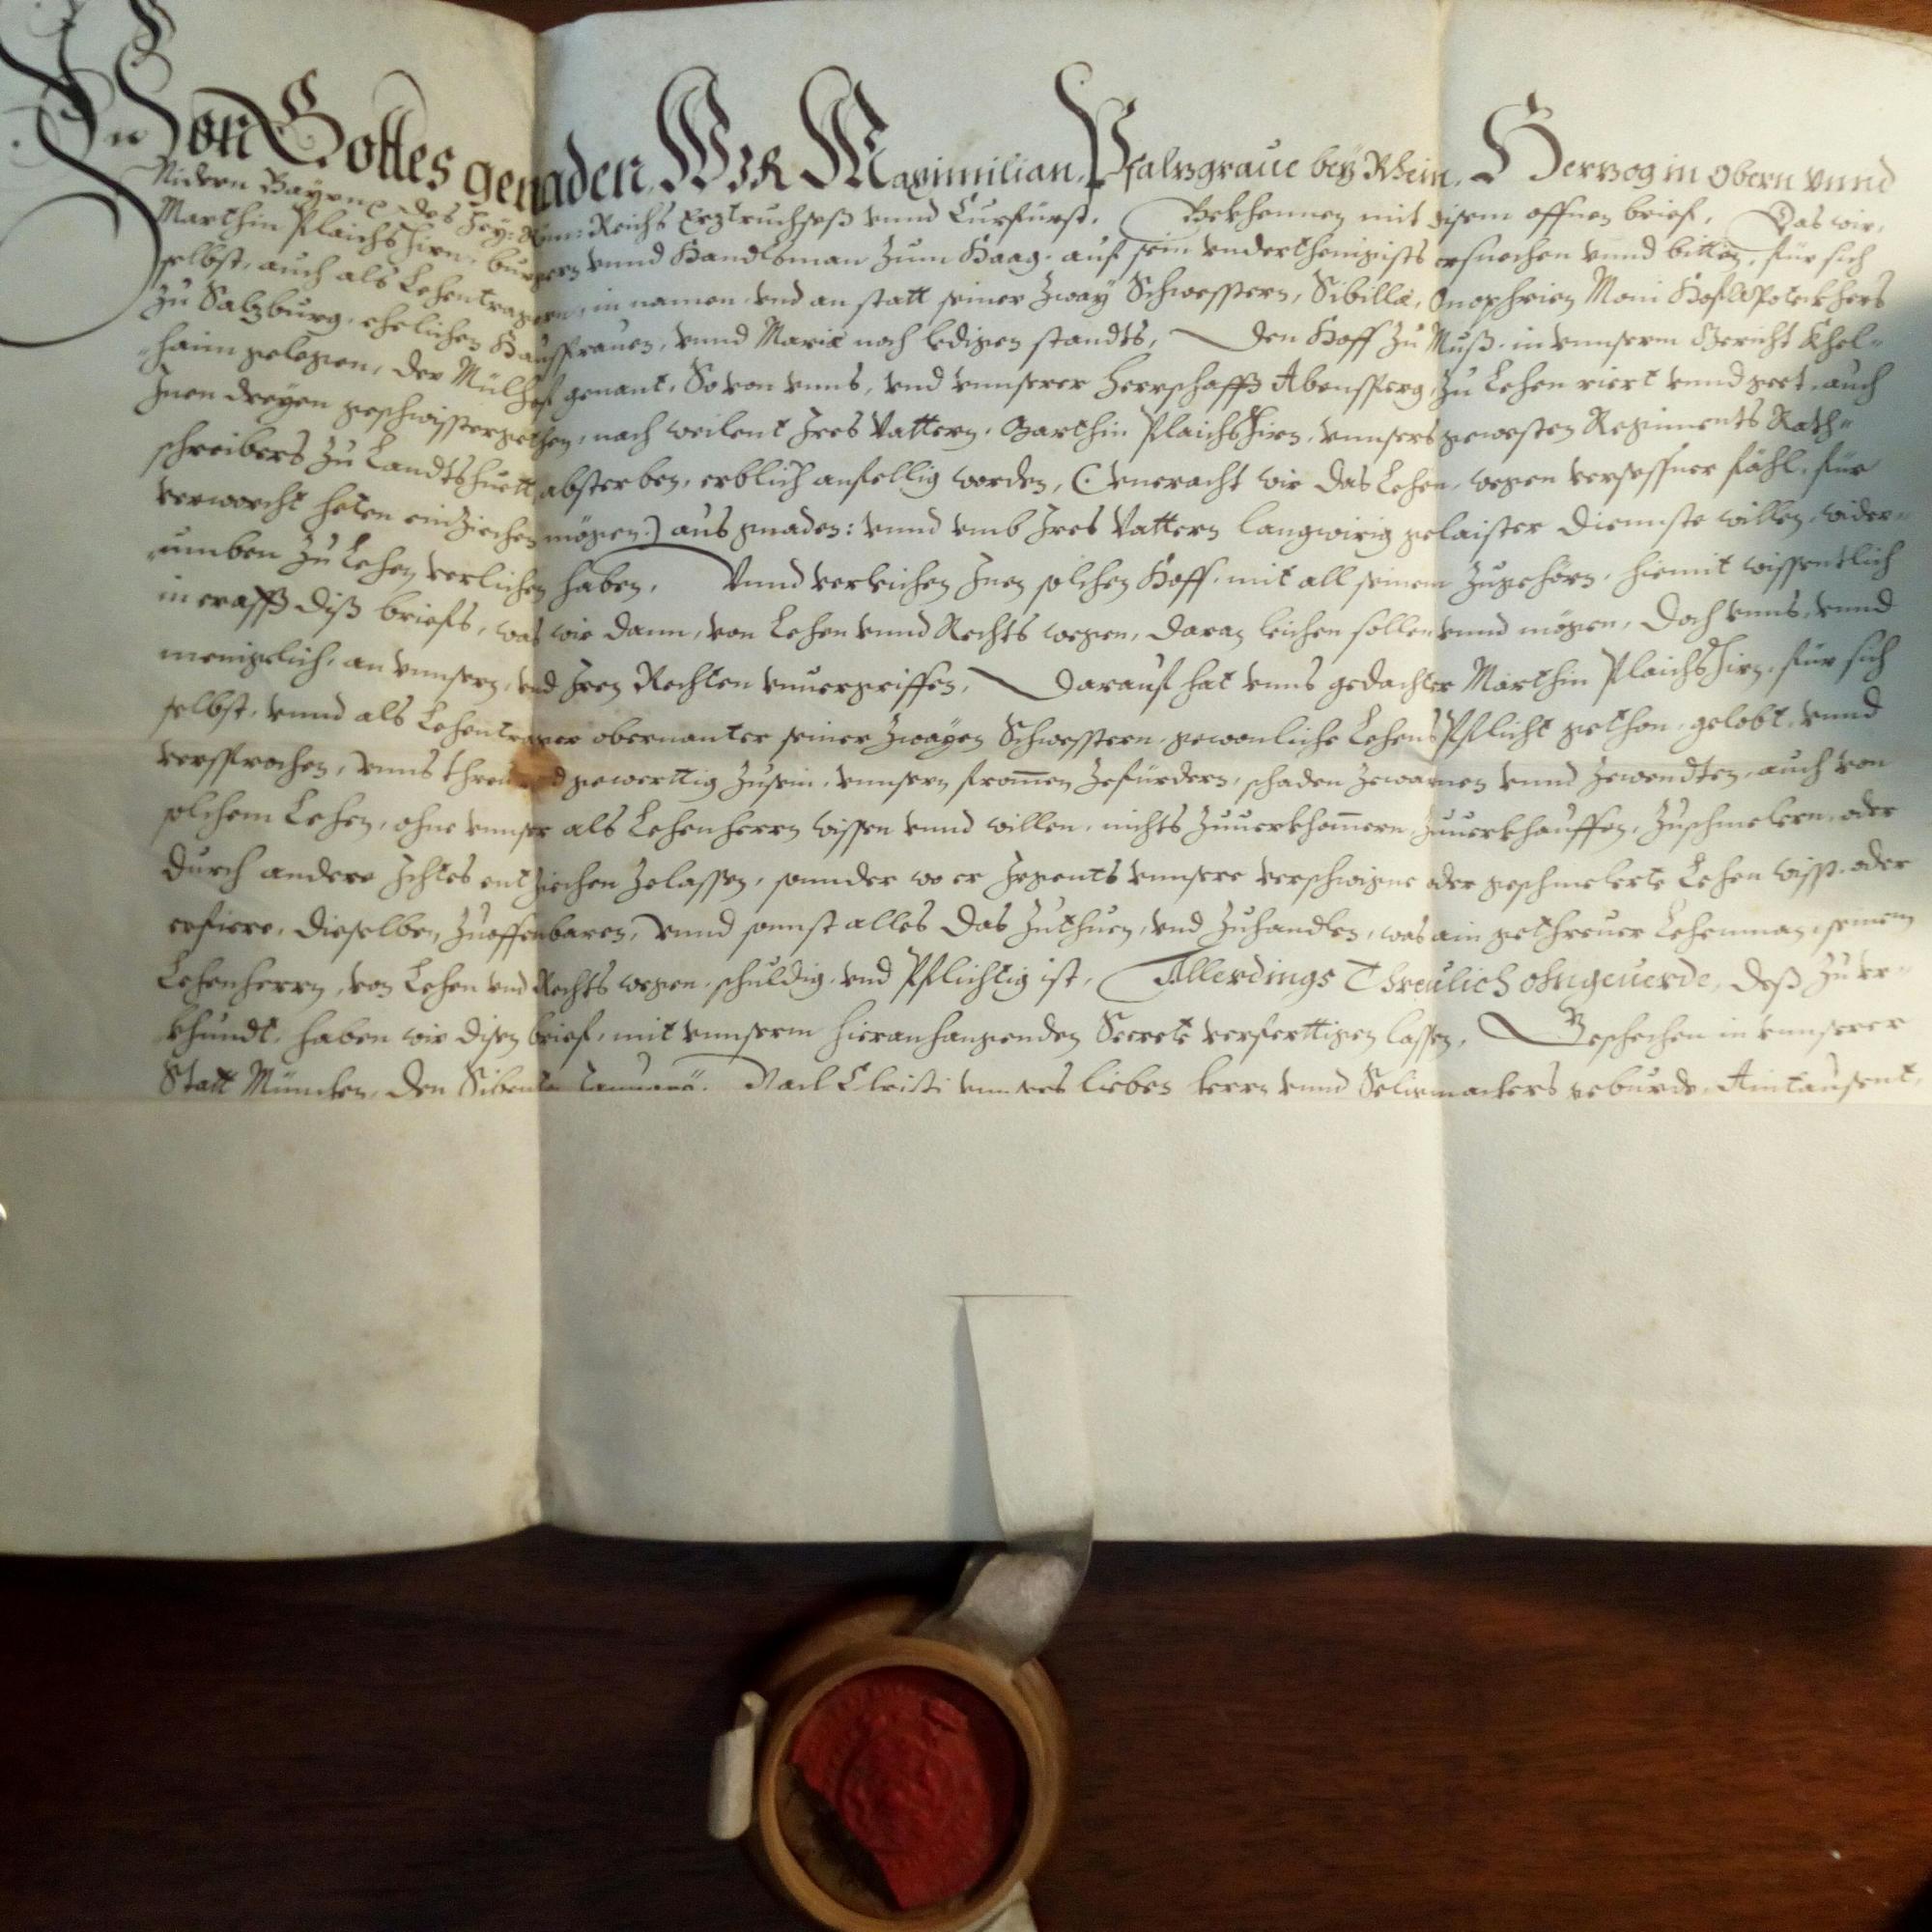 Von Gottes genaden, Wir Maximilian, Pfalzgraue bey Rhein, Herzog in Obern vnnd
Nidern Bayrn, des Hey: Röm: Reichs Erztruchseß vnnd Curfürst, Bekhennen mit disem offnen brief, Das wir,
Marthin Plaichshirn, burgern vnnd Handlsman zum Haag, auf sein vnderthenigists ersuechen vnnd bitten, für sich
selbst, auch als Lehentragern, in namen vnd an statt seiner zway Schwesstern, Sibilla, Onophrien Moni
zu Salzburg, ehelichen Hausfrauen, vnnd Maria noch ledigen standts, den Hoff zu Muß, in vnnserm Gericht Khel-
haim gelegen, der Mülhof genant, So von vnns, vnd vnnserer Herrschafft Abensperg, zu Lehen riert vnnd geet, auch
Inen dreyen geschwistergethen, nach weilent Ires Vattern, Marthin Plaichshirn, vnnsers gewesten Regiments Rath-
schreibers zu Landtshuett absterben, erblich anfellig worden, (Vneracht wir das Lehen, wegen versessner fähl, für
verworcht heten einziechen mögen:) aus gnaden: vnnd vmb Ires Vattern langwirig gelaister Diennste willen, wider-
umben zu Lehen verlichen haben, Vnnd verleichen Inen solchen Hoff, mit all seinem zugehörn, hiemit wissentlich
in crafft diß briefs, was wir dann, von Lehen vnnd Rechts wegen, daran leichen sollen vnnd mögen, doch vnns, vnnd
meniglich, an vnnsern, vnd Iren Rechten vnuergriffen, Darauf hat vnns gedachter Marthin Plaichshirn, für sich
selbst, vnnd als Lehentrager obernanter seiner zwayen Schwesstern, gewonliche Lehens Pflicht gethon, gelobt vnnd
versprochen, vnns threu vnd gewerttig zusein, vnnsern fromen zefürdern, schaden zewarnen vnnd zewendten, auch von
solchem Lehen, ohne vnnser als Lehenherrn wissen vnnd willen, nichts zuuerkhomern, zuuerkhauffen, zuschmelern, oder
durch andere Ichtes entziechen zelassen, sonnder wo er Irgents vnnsere verschwigne oder geschmelerte Lehen wisst, oder
erfiere, dieselben, zuoffenbaren, vnnd sonnst alles das zuthuen, vnd zuhandlen, was ain gethreuer Lehenman, seinem
Lehenherrn, von Lehen vnd Rechts wegen, schuldig, vnd Pflichtig ist, Allerdings Threulich ohngeuerde, deß zu vr-
khundt, haben wir disen brief, mit vnnserm hieranhangenden Secrete verferttigen lassen, Geschechen in vnnserer
Statt München, den Sibenten Januarii, Nach Christi vnnsers lieben herrn vnnd Seligmachers geburde, Aintausent,